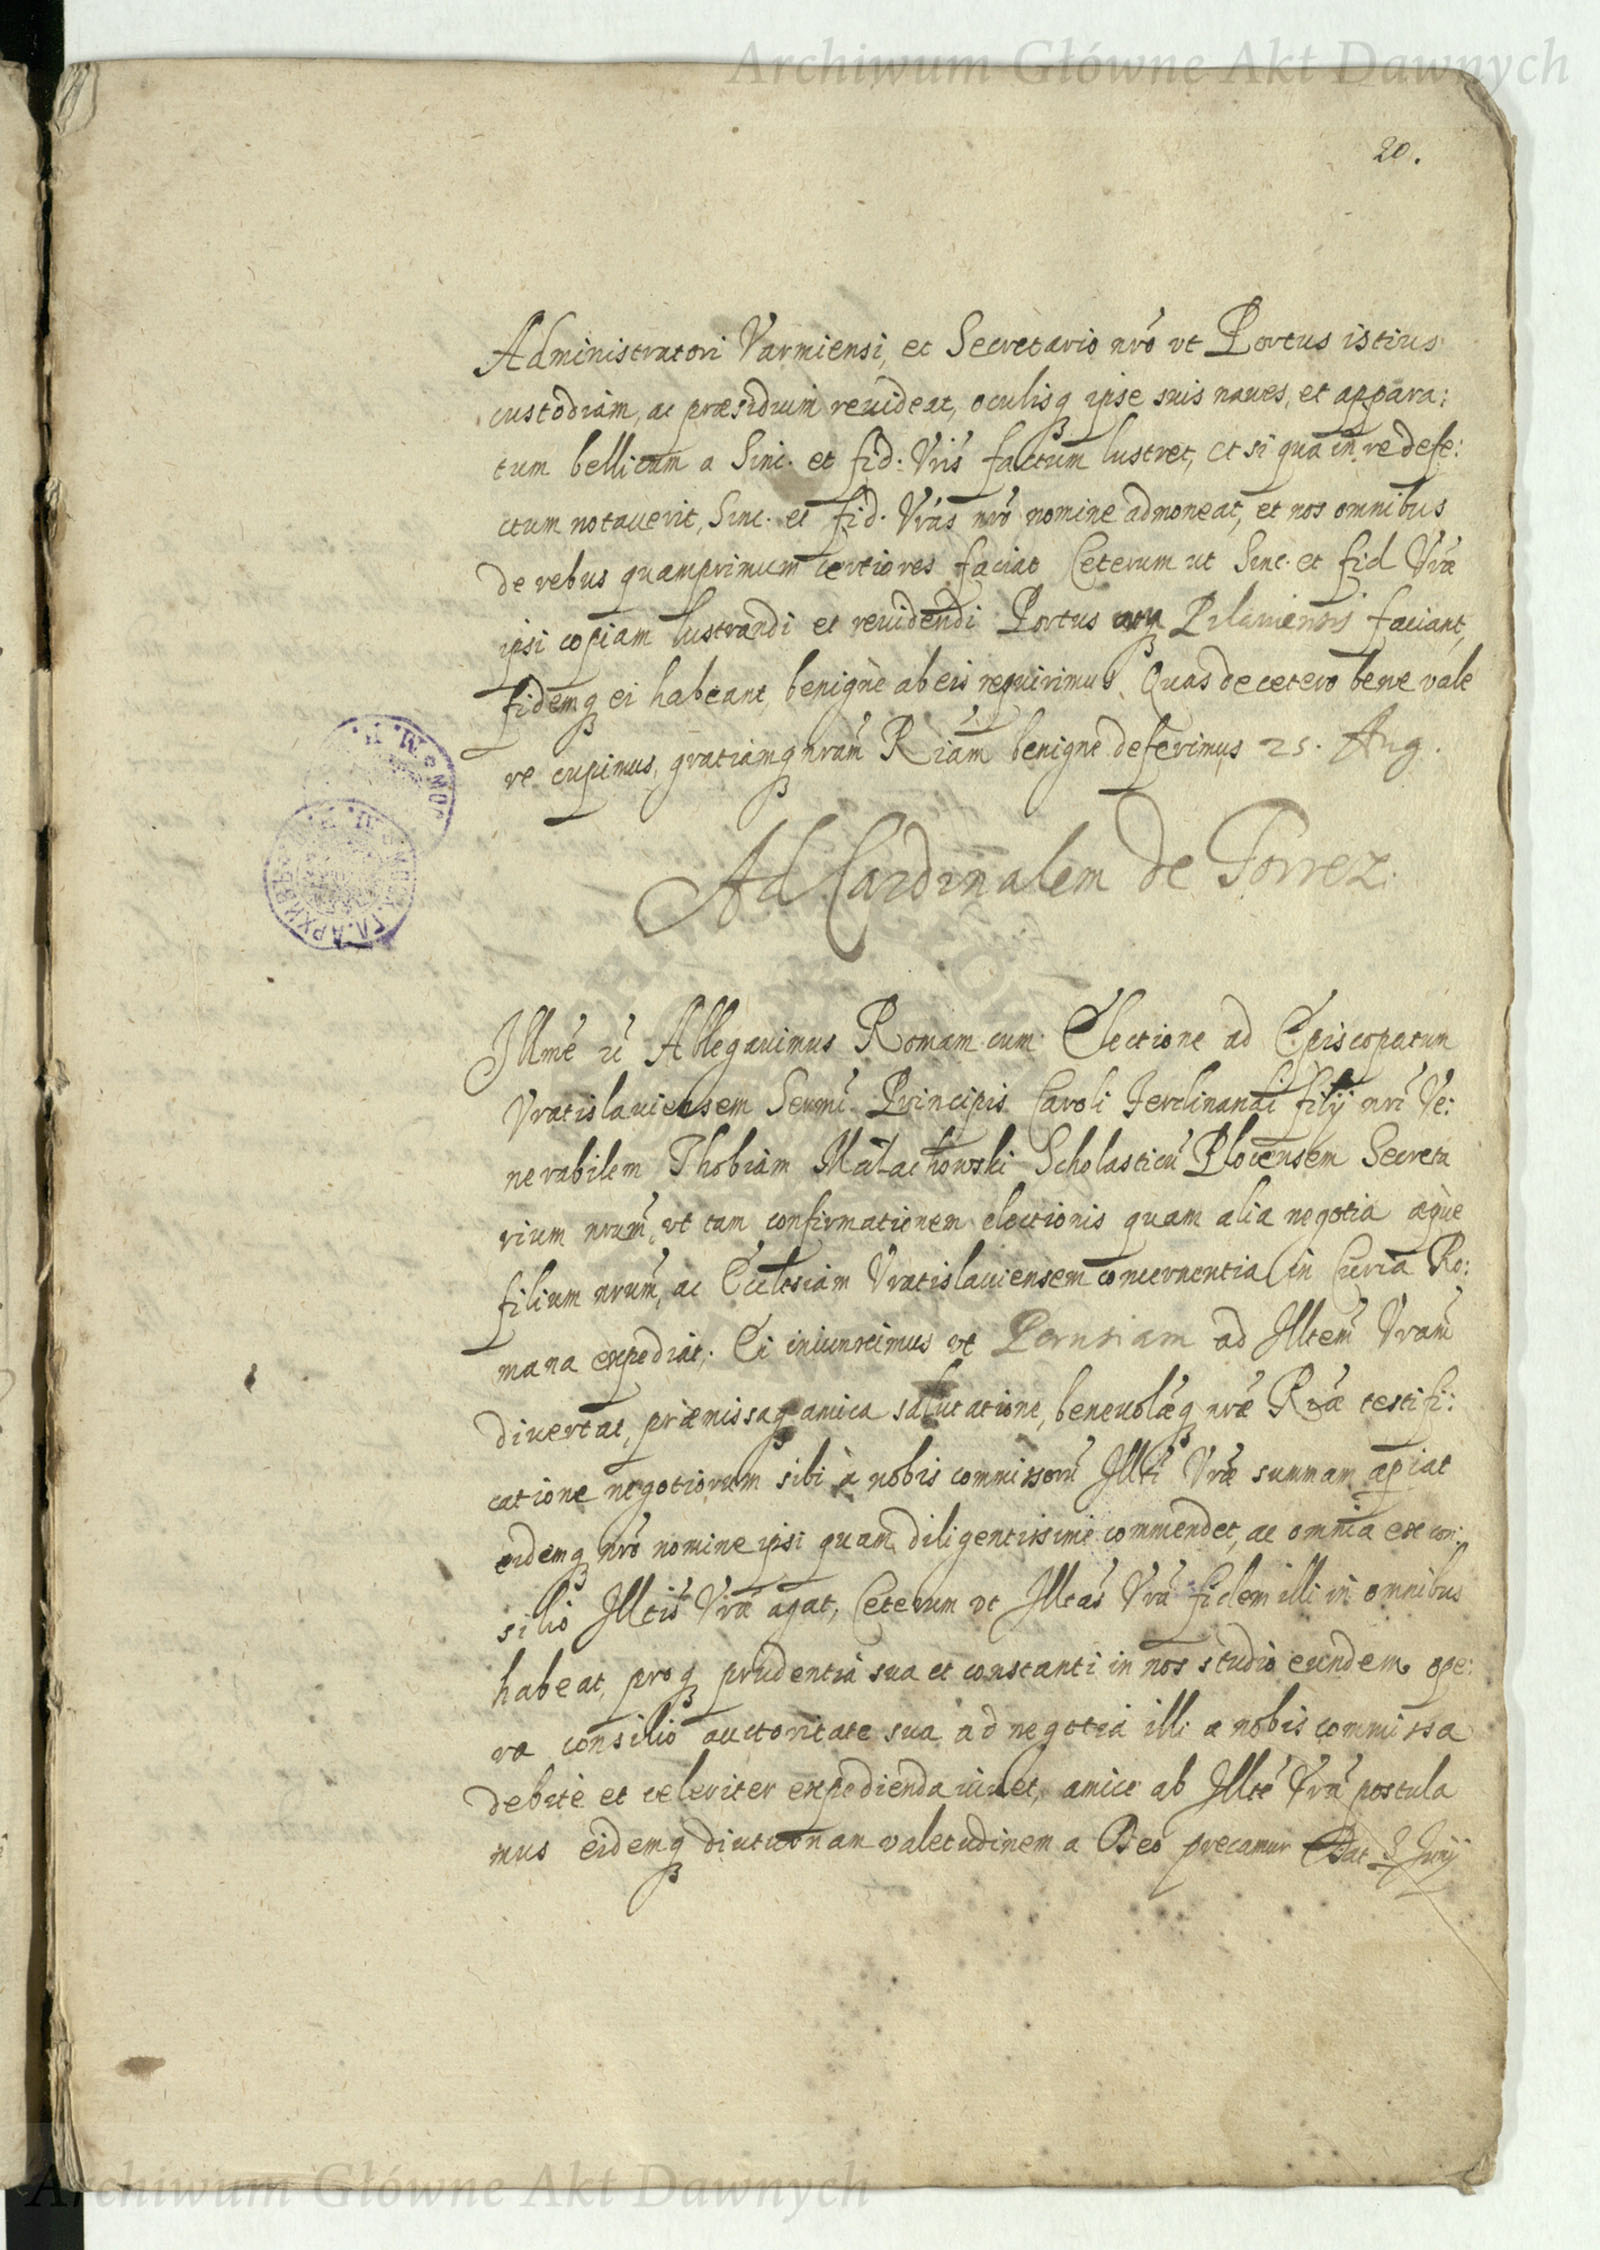 Archiwum Główne Akt Dawnych
20.
Administratori Varmiensi, et Secretario nro vt Portus istius
custodiam, ac præsidium reuideat, oculisq ipse suis naues, et appara:
tum bellicum a Sinc. et fid. Vris factum lustret, et si qua in re defe:
ctum notauerit, Sinc. et fid. Vras nro nomine admoneat, et nos omnibus
de rebus quamprimum certiores faciat Ceterum ut Sinc. et fid Vræ
ipsi copiam lustrandi et reuidendi Portus Pilauiensis faciant,
fidemq ei habeant, benignè ab eis requirimus. Quas de cetero bene vale
re cupimus, gratiamq nram Riam benigne deferimus 25. Aug.
Ad Cardinalem de Torrez.
Illme Ablegauimus Romam cum Electione ad Episcopatum
Vratislauiensem Sermi Principis Caroli Ferdinandi filij nri Ve:
nerabilem Thobiam Małachowski Scholasticu Plocensem Secreta
rium nrum, vt tam confirmationem electionis quam alia negotia æque
filium nrum, ac Ecclesiam Vratislauiensem concernentia in Curia Ro:
mana expediat. Ei iniunximus vt Perusiam ad Illtem Vram
diuertat, præmissaq amica salutatione, beneuolæq nræ Riæ testifi:
catione negotiorum sibi a nobis commissoru Illti Vræ summam apiat
eidemq nro nomine ipsi quam diligentissime commendet, ac omnia ex con:
silio Illtis Vræ agat, Ceterum vt Illtas Vra fidem illi in omnibus
habeat, proq prudentia sua et constanti in nos studio eundem ope:
ra consilio auctoritate sua ad negotia illi a nobis commissa
debitè et celeriter expedienda iuuet, amice ab Illte Vra postula
mus eidemq diuturnam valetudinem a Deo precamur Dat Junij
Archiwum Główne Akt Dawnych